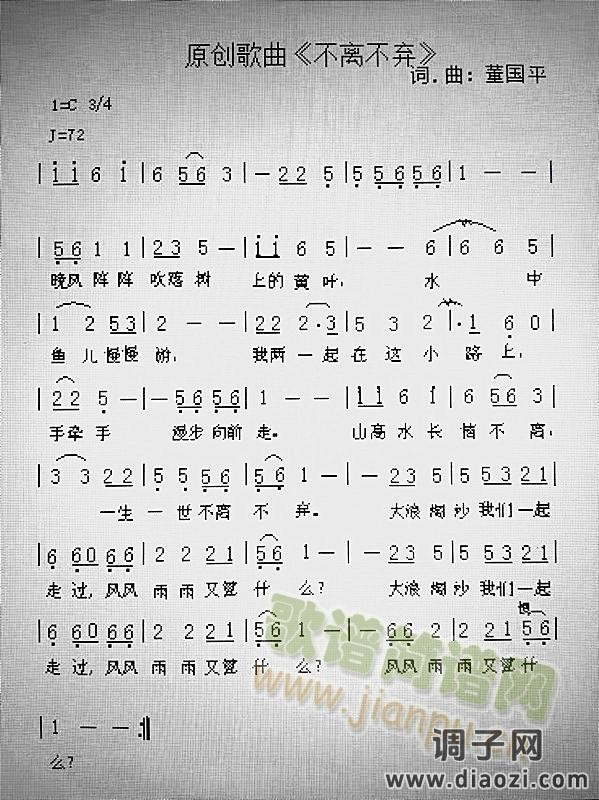 原创歌曲《不离不弃》
词.曲：董国平
1=C 3/4
J=72
| i i 6 i | 6 5 6 3 | — 2 2 5 | 5 5 6 5 6 5 | 1 — — |
| 5 6 1 1 | 2 3 5 — | i i 6 5 | — — 6 | 6 6 5 |
晚风阵阵吹落树 上的黄叶，水 中
| 1 2 5 3 | 2 — — | 2 2 2 · 3 | 5 3 2 | · 1 6 0 |
鱼儿慢慢游，我两一起在这小路上，
| 2 2 5 — | — 5 6 5 6 | 1 — — | i i 6 i | 6 5 6 3 |
手牵手 漫步向前走。 山高水长情不离，
| 3 3 2 2 | 5 5 5 6 | 5 6 1 — | — 2 3 5 | 5 5 3 2 1 |
一生一世不离不弃。 大浪淘沙我们一起
| 6 6 0 6 6 | 2 2 2 1 | 5 6 1 — | — 2 3 5 | 5 5 3 2 1 |
走过，风风雨雨又算什么？ 大浪淘沙我们一起
| 6 6 0 6 6 | 2 2 2 1 | 5 6 1 — | — 6 6 2 | 2 2 1 5 6 |
走过，风风雨雨又算什么？ 风风雨雨又算什
| 1 — — :‖
么？
歌谱简谱网
www.jianpu.cn
调子网
www.diaozi.com